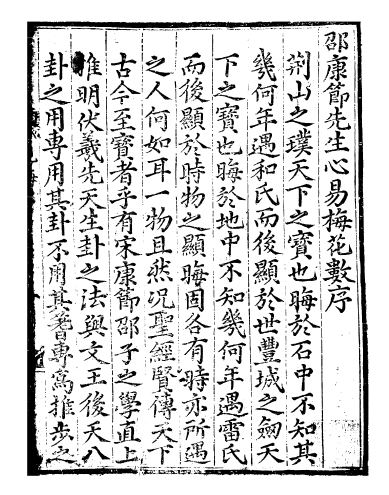 邵康節先生心易梅花數序
荆山之璞天下之寳也晦於石中不知其
幾何年遇和氏而後顯於世豐城之劒天
下之寳也晦於地中不知幾何年遇雷氏
而後顯於時物之顯晦固各有時亦所遇
之人何如耳一物且然况聖經賢傳天下
古今至寳者乎有宋康節邵子之學直上
推明伏羲先天生卦之法與文王後天八
卦之用專用其卦不用其蓍專爲推步之